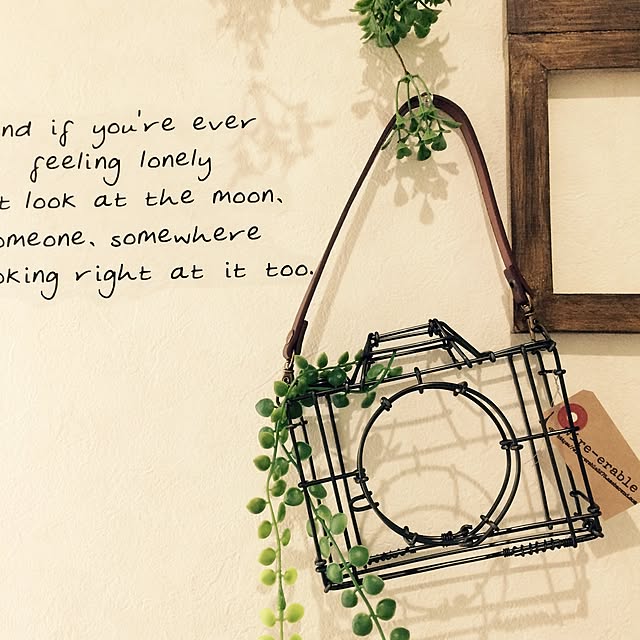 nd if you're ever
feeling lonely
t look at the moon.
omeone, somewhere
oking right at it too.
re-erable